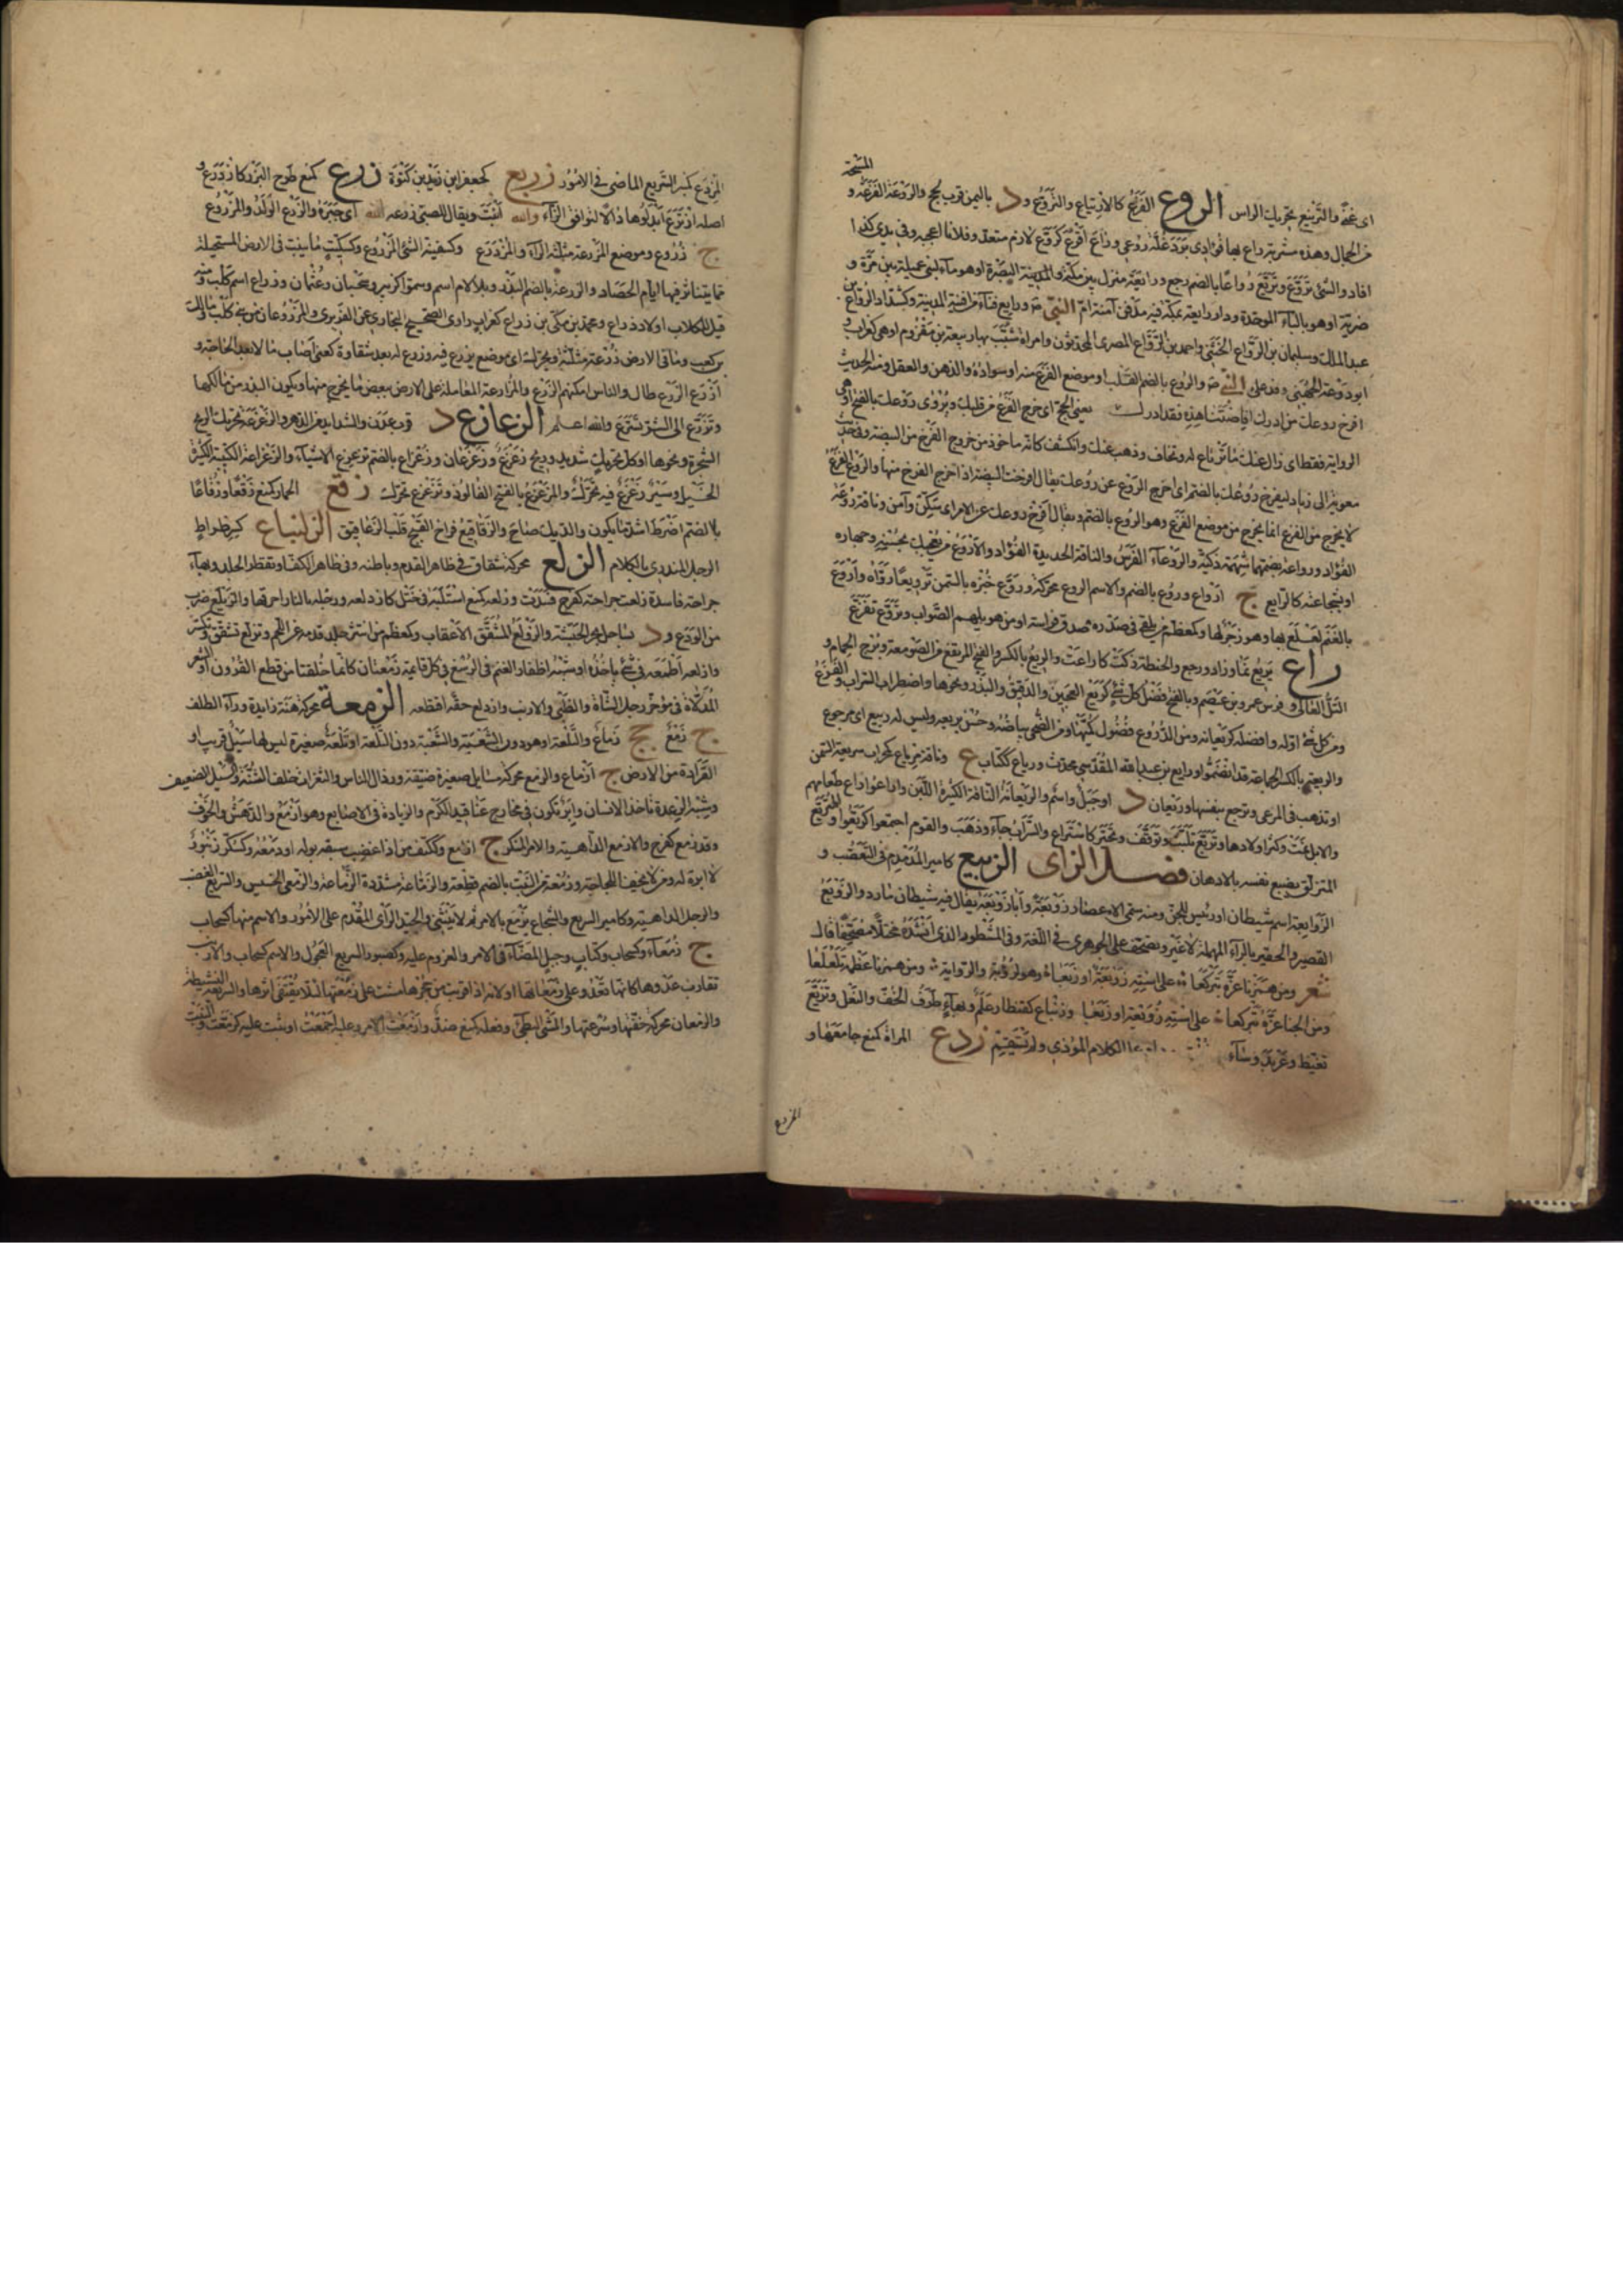 المسحة
اى غمة والترنيع تحريك الراس الروع الفزع كالارتياع والتروع ود باليمن قرب لحج والروعة الفزعة و
من الجمال وهذه شربة راع بها فؤادى برد غلة روعى وراع افزع كروع لازم متعد وفلانا اعجبه وفى يدى كذا
افاد والشئ يروع ويريع رواعا بالضم رجع ورائعة منزل بين مكة والبصرة او هو ماء لبنى عميلة بين مرة و
ضرية او هو بالباء الموحدة ودار رائعة بمكة فيه مدفن آمنة ام النبى ورايع فناء من افنية المدينة وكشداد الرواع بن
عبد الملك وسليمان بن الرواع الخشنى واحمد بن الرواع المصرى المحدثون وامراة شبب بها ربيعة بن مقروم او هى كغراب و
ابو روعة الجهنى وفد على النبى والروع بالضم القلب او موضع الفزع منه او سواده والذهن والعقل ومنه الحديث
افرخ روعك من ادرك افاضتنا هذه فقد ادرك يعنى الحج اى خرج الفزع من قلبك ويروى روعك بالفتح او هى
الرواية فقط اى زال عنك ما ترتاع له وتخاف وذهب عنك وانكشف كانه ماخوذ من خروج الفرخ من البيضة وفى حديث
معوية الى زياد ليفرخ روعك بالضم اى اخرج الروع عن روعك يقال افرخت البيضة اذا خرج الفرخ منها والروع الفزع
لا يخرج من الفزع انما يخرج من موضع الفزع وهو الروع بالضم ويقال افرخ روعك على الامر اى سكن وآمن وناقة رواعة
الفؤاد ورواعه بضمهما شهمة ذكية والروعاء الفرس والناقة الحديدة الفؤاد والاروع من يعجبك بحسنه وجهارة
او بشجاعته كالرايع ج ارواع وروع بالضم والاسم الروع محركة وروع خبزه بالسمن ترويعا رواه واروع
بالغنم لعلع بها وهو زجر لها وكمعظم من يلقى فى صدره صدق فراسة او من هو يلهم الصواب وتروع تفزع
راع يريع نما وزاد ورجع والحنطة زكت كاراعت والريع بالكسر والفتح المرتفع من الصومعة وبرج الحمام و
التل العالى وفرس عمرو بن عصم وبالفتح فضل كل شئ كريع العجين والدقيق والبذر ونحوها واضطراب السراب والفزع
ومن كل شئ اوله وافضله كريعانه ومن الدروع فضول كميها ومن الضحى بياضه وحسن بريقه وليس له ريع اى مرجوع
والريعة بالكسر الجماعة قد انضموا ورايع بن عبد الله المقدسى محدث ورياع ككتاب ع وناقة مرياع كمحراب سريعة السمن
او تذهب فى المرعى وترجع بنفسها وريعان د او جبل واسم والريعانة الناقة الكثيرة اللبن واراعوا راع طعامهم
والابل نمت وكثر اولادها وتريع تلبث وتوقف وتحير كاستراع والسراب جاء وذهب والقوم اجتمعوا كريعوا والمتريع
المتزلق يضبع نفسه بالادهان فصل الزاى الزبيع كامير المدمدم فى الغضب و
الزوابعة اسم شيطان او رئيس للجن ومنه سمى الاعصار زوبعة وابا زوبعة يقال فيه شيطان مارد والزوبع
القصير الحقير بالراء المهملة لا غير وتصحف على الجوهرى فى اللغة وفى المشطور الذى انشده مختلا مصحفا قال
شعر ومن همزنا عزه تبركعا على استه زوبعة او زوبعا وهو لرؤبة والرواية ومن همزنا عظمه تلعلعا
ومن ابحنا عزه تبركعا على استه روبعة او روبعا وزنباع كقنطار علم وبهاء طرف الخف والنعل وتزبع
تغيظ وعربد وساء الكلام المؤذى ولم يستقم زدع المراة كمنع جامعها و
المزدع
المزدع كمنبر السريع الماضى فى الامور زربع كجعفر ابن زيد بن كثوة زرع كمنع طرح البزر كازدرع و
اصله ازترع ابدلوها دالا لتوافق الزاء والله انبت ويقال للصبى زرعه الله اى جبره والزرع الولد والمزروع
ج زروع وموضع المزرعة مثلثة الراء والمزدرع وكسفينة الشئ المزروع وكسكيت ما ينبت فى الارض المستحيلة
مما يتناثر فيها ايام الحصاد والزرعة بالضم البذر وبلا لام اسم وسموا كزبير وسحبان وعثمان وزراع اسم كلب ومنه
قيل للكلاب اولاد زراع ومحمد بن مكى بن زراع كغراب راوى الصحيح للبخارى عن الفربرى والمزروعان من بنى كعب
بن كعب وما فى الارض زرعة مثلثة وتحرك اى موضع يزرع فيه وزرع له بعد شقاوة كعنى اصاب مالا بعد الحاجة و
ازرع الزرع طال والناس امكنهم الزرع والمزارعة المعاملة على الارض ببعض ما يخرج منها ويكون البذر من مالكها
وتزرع الى الشر تسرع والله اعلم الزعازع د قرب عدن والشدايد من الدهر والزعزعة تحريك الريح
الشجرة ونحوها او كل تحريك شديد وريح زعزع وزعزعان وزعزاع بالضم تزعزع الاشياء والزعزاعة الكتيبة الكثيرة
الخيل وسير زعزع فيه تحرك والمزعزع بالفتح الفالوذ وتزعزع تحرك زقع الحمار كمنع زقعا وزقاعا
بالضم اضرط اشد ما يكون والديك صاح والزقاقيع فراخ القبج قلب الزعاقيق الزلنباع كسرطراط
الرجل المندرى بالكلام الزلع محركة شقاق فى ظاهر القدم وباطنه وفى ظاهر الكف او تفطر الجلد وبهاء
جراحة فاسدة زلعت جراحته كفرح فسدت وزلعه كمنع استلبه فى ختل كازدلعه ورجله بالنار احرقها والزيلع ضرب
من الودع ود بساحل بحر الحبشة والزولع المشقق الاعقاب وكمعظم من انتشر جلد قدمه عن اللحم وتزلع تشقق وتكسر
وازلعه اطمعه فى شئ ياخذه او شبه اظفار الغنم فى الرسغ فى كل قائمة زمعتان كانما خلقتا من قطع القرون او الشعر
المدلاة فى مؤخر رجل الشاة والظبى والارنب وازدلع حقه اقتطعه الزمعة محركة هنة زايدة وراء الظلف
ج زمع جج زماع والتلعة او هو دون الشعبة والشعبة دون التلعة او تلعة صغيرة ليس لها سيل قريب او
القرارة من الارض ج ازماع والزمع محركة مسايل صغيرة ضيقة ورذال الناس والشعرات خلف الثنة والسيل الضعيف
وشبه الرعدة تاخذ الانسان وابن تكون فى مخارج عناقيد الكرم والزيادة فى الاصابع وهو ازمع والدهش والخوف
وقد زمع كفرح والازمع الداهية والامر المنكر ج ازامع وككتف من اذا غضب سبقه بوله او دمعه وكسكر زنبور
لا ابرة له ومن لا يخف للحاجة وزمعة من النبت بالضم قطعة والزماعة مشددة الرماعة والزمعى الخسيس والسريع الغضب
والرجل الداهية وكامير السريع والشجاع يزمع بالامر ثم لا ينثنى والجيد الراى المقدم على الامور والاسم منها كسحاب
ج زمعاء وكسحاب وكتاب وجبل المضاء فى الامر والعزوم عليه وكصبور السريع العجول والاسم كسحاب والارنب
تقارب عدوها كانها تعدو على زمعاتها او لانه اذا قربت من جحرها مشت على زمعتها لئلا يقتفى اثرها والسريعة النشيطة
والزمعان محركة خفتها وسرعتها والمشى البطئ وفعله كمنع ضد وازمعت الامر وعليه اجمعت او ثبت عليه كزمعت والنبت